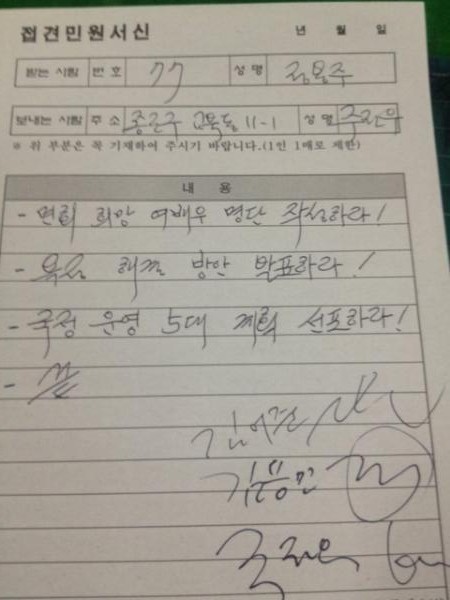 접견민원서신
년 월 일
받는 사람 번 호 77 성 명 정봉주
보내는 사람 주 소 종로구 교북동 11-1 성 명 주진우
※ 위 부분은 꼭 기재하여 주시기 바랍니다.(1인 1매로 제한)
내 용
- 면회 희망 여배우 명단 작성하라!
- 욕정 해결 방안 발표하라!
- 국정 운영 5대 계획 선포하라!
- 끝
김어준
김용민
주진우